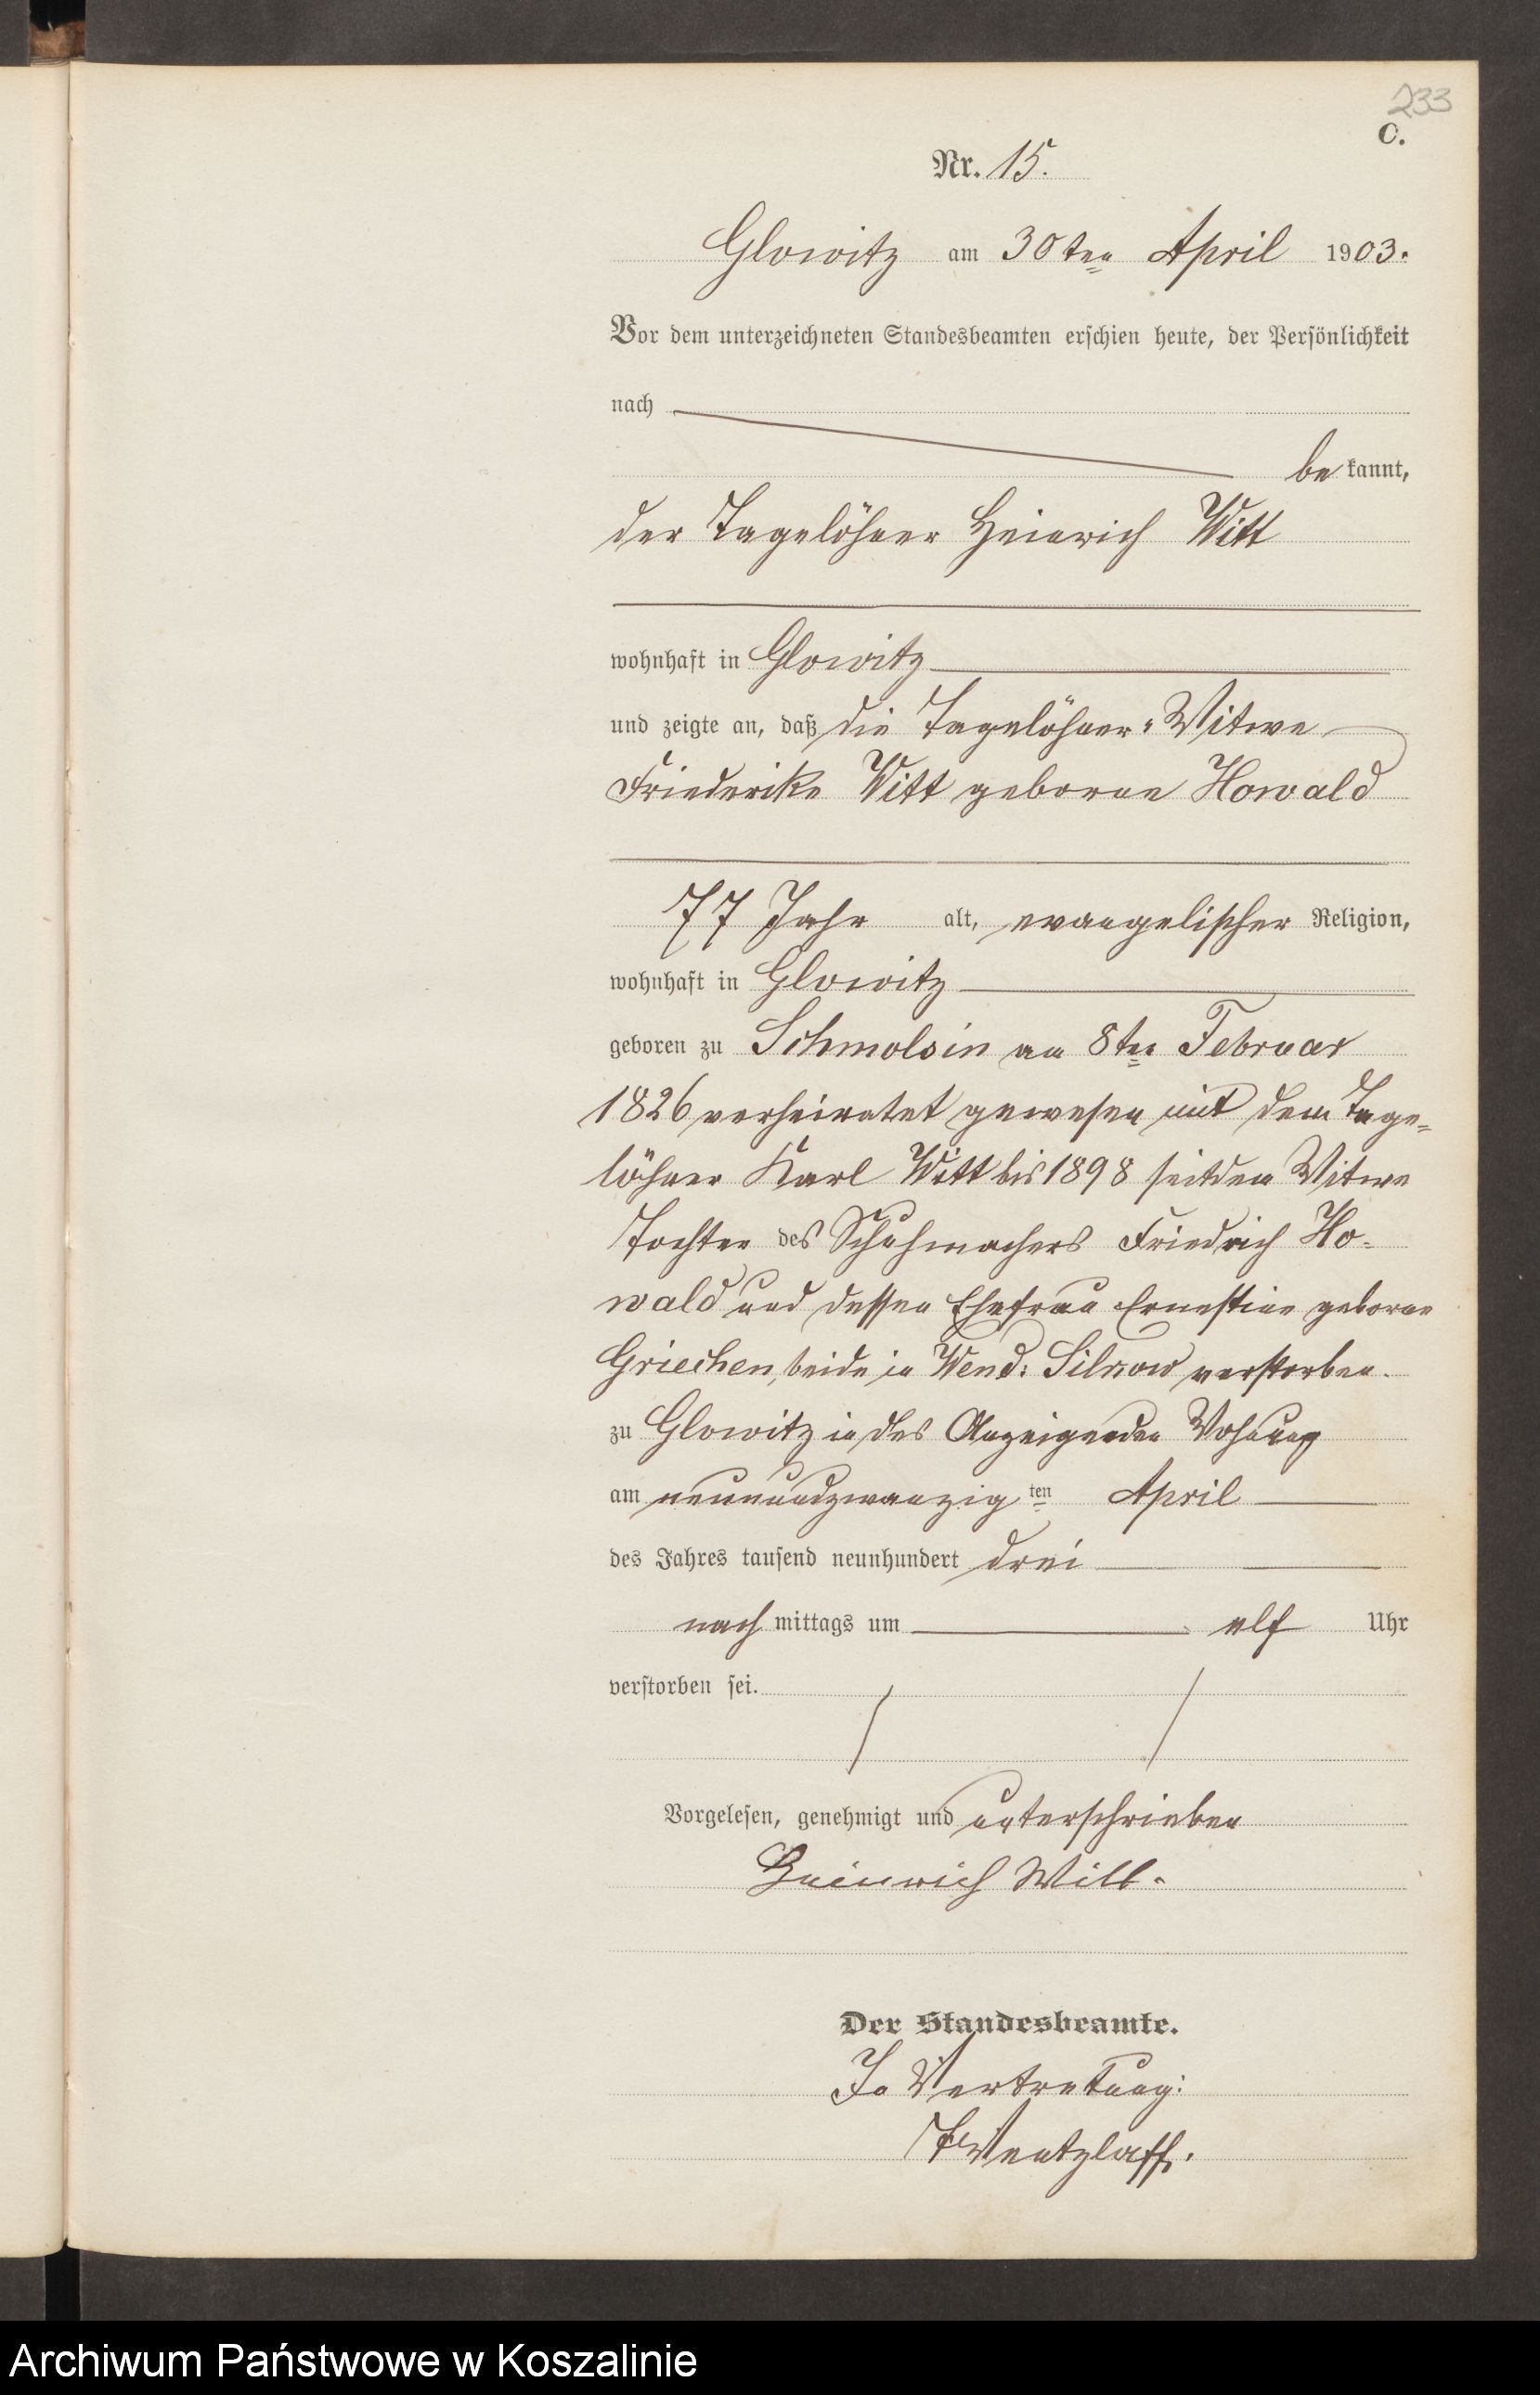 233
C.
Nr. 15.
Glowitz am 30ten April 1903.
Vor dem unterzeichneten Standesbeamten erschien heute, der Persönlichkeit
nach
be kannt,
der Tagelöhner Heinrich Witt
wohnhaft in Glowitz
und zeigte an, daß die Tagelöhner-Witwe
Friederike Witt geborne Howald
77 Jahr alt, evangelischer Religion,
wohnhaft in Glowitz
geboren zu Schmolsin am 8ten Februar
1826 verheiratet gewesen mit dem Tage-
löhner Karl Witt bis 1898 seitdem Witwe
Tochter des Schuhmachers Friedrich Ho-
wald und dessen Ehefrau Ernestine geborne
Griechen, beide in Wend: Silkow verstorben.
zu Glowitz in des Anzeigenden Wohnung
am neunundzwanzig ten April
des Jahres tausend neunhundert drei
nach mittags um elf Uhr
verstorben sei.
Vorgelesen, genehmigt und unterschrieben
Heinrich Witt.
Der Standesbeamte.
In Vertretung:
Wentzlaff.
Archiwum Państwowe w Koszalinie